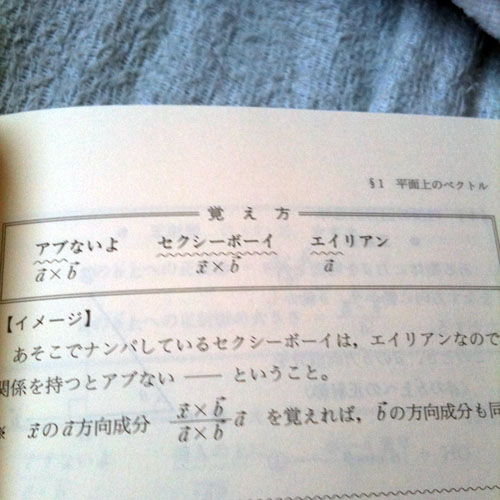 §1 平面上のベクトル
覚え方
アブないよ セクシーボーイ エイリアン
a⃗×b⃗ x⃗×b⃗ a⃗
【イメージ】
あそこでナンパしているセクシーボーイは，エイリアンなので
関係を持つとアブない ―― ということ。
※ x⃗のa⃗方向成分 x⃗×b⃗/a⃗×b⃗ a⃗ を覚えれば，b⃗の方向成分も同